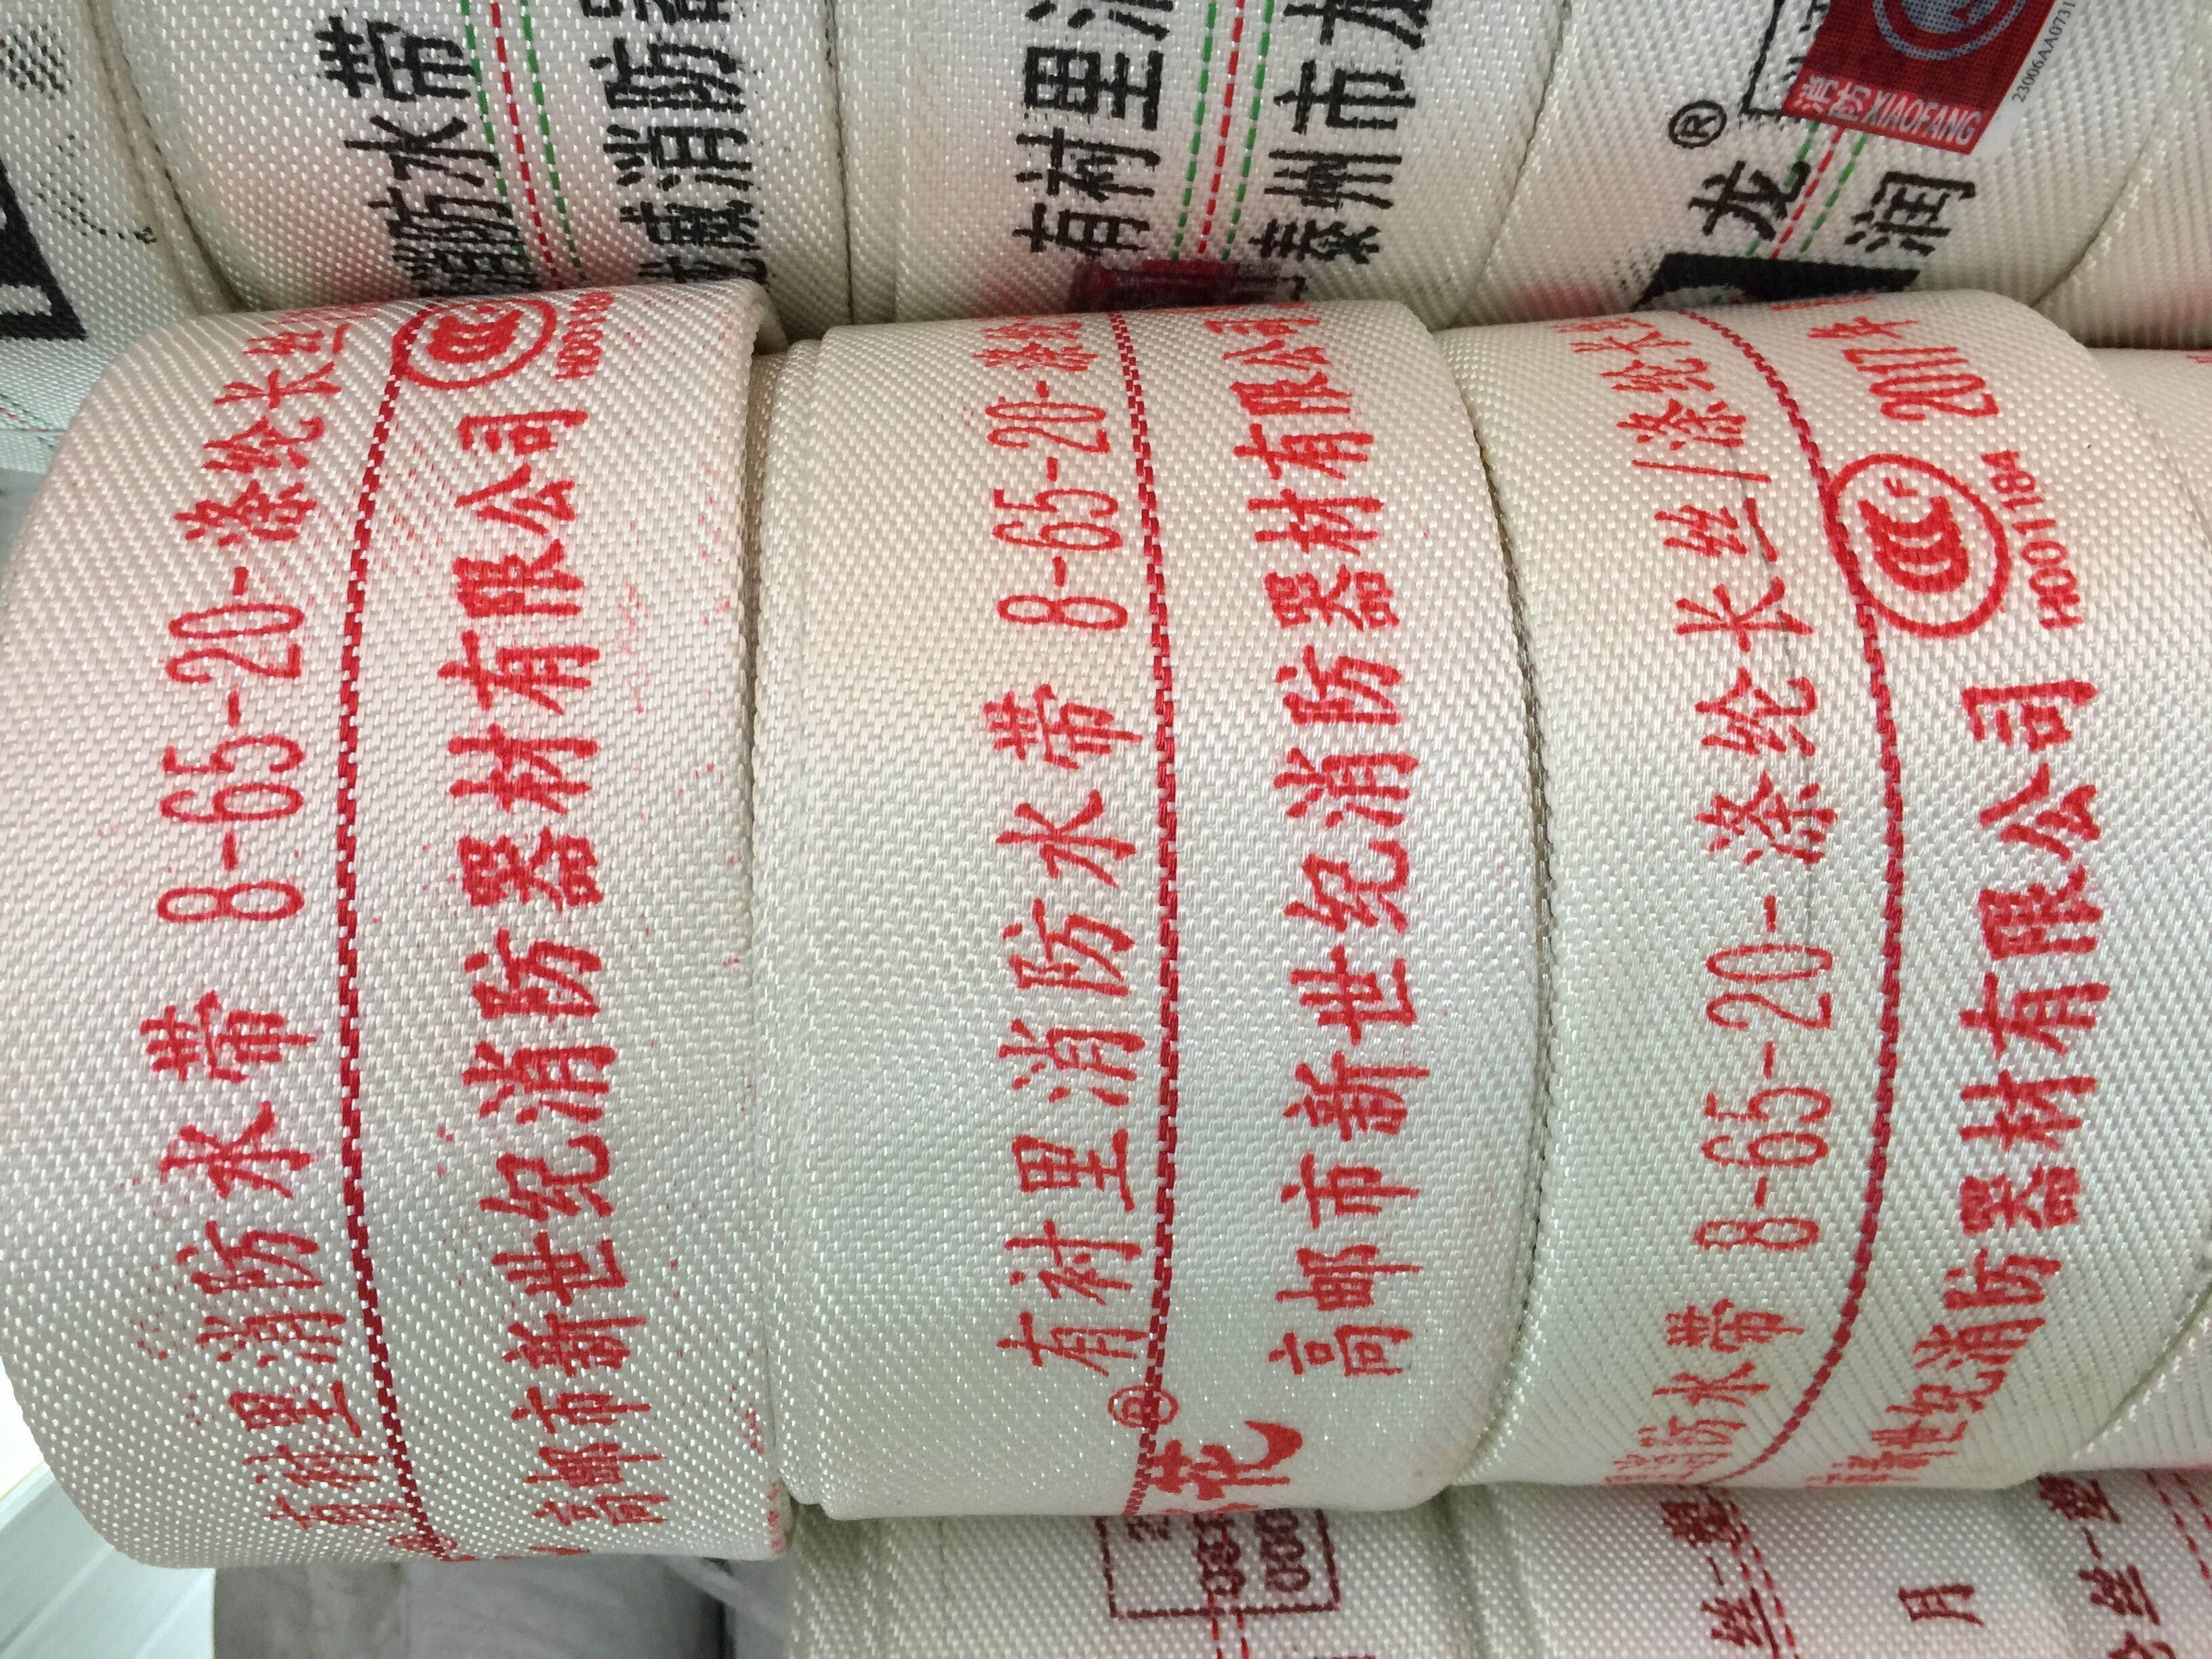 消防水带
威消防
有衬里
泰州市龙
龙®
润
消防 XIAOFANG
23006AA0731
有衬里消防水带 8-65-20-涤纶长丝
高邮市新世纪消防器材有限公司
CCC
有衬里消防水带 8-65-20-涤纶
花®
高邮市新世纪消防器材有限公司
消防水带 8-65-20-涤纶长丝/涤纶长
新世纪消防器材有限公司 CCCF 2011年
H0011184
丝-塑
月
丝-塑